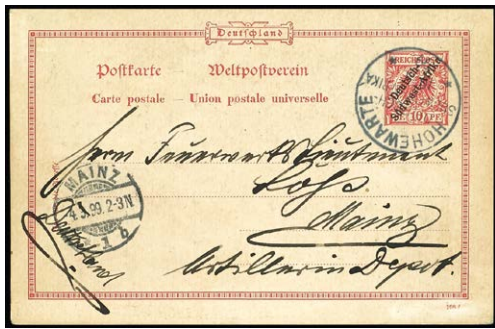 Deutschland
Postkarte Weltpostverein
Carte postale – Union postale universelle
REICHSPOST
10 PF
Deutsch-
Südwestafrika
HOHEWARTE
MAINZ
4.3.99.2-3N
1 b
Herrn Feuerwerks Lieutenant
Mainz
Artillerie Depot.
Deutschland